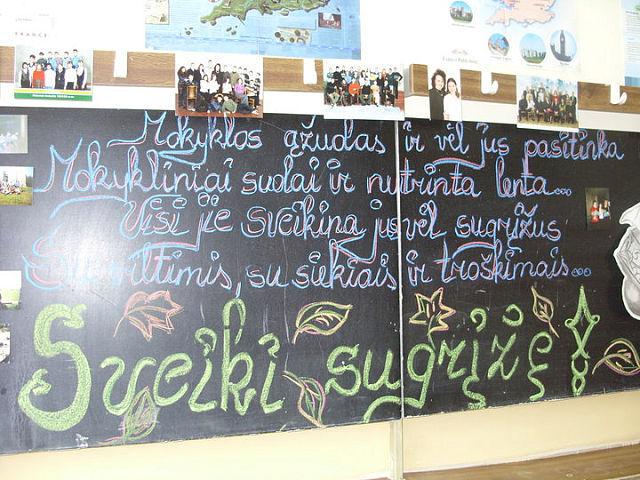 Mokyklos ąžuolas ir vėl jus pasitinka
Mokykliniai suolai ir nutrinta lenta...
Visi jie sveikina jus vėl sugrįžus
Su viltimis, su siekiais ir troškimais...
Sveiki sugrįžę!